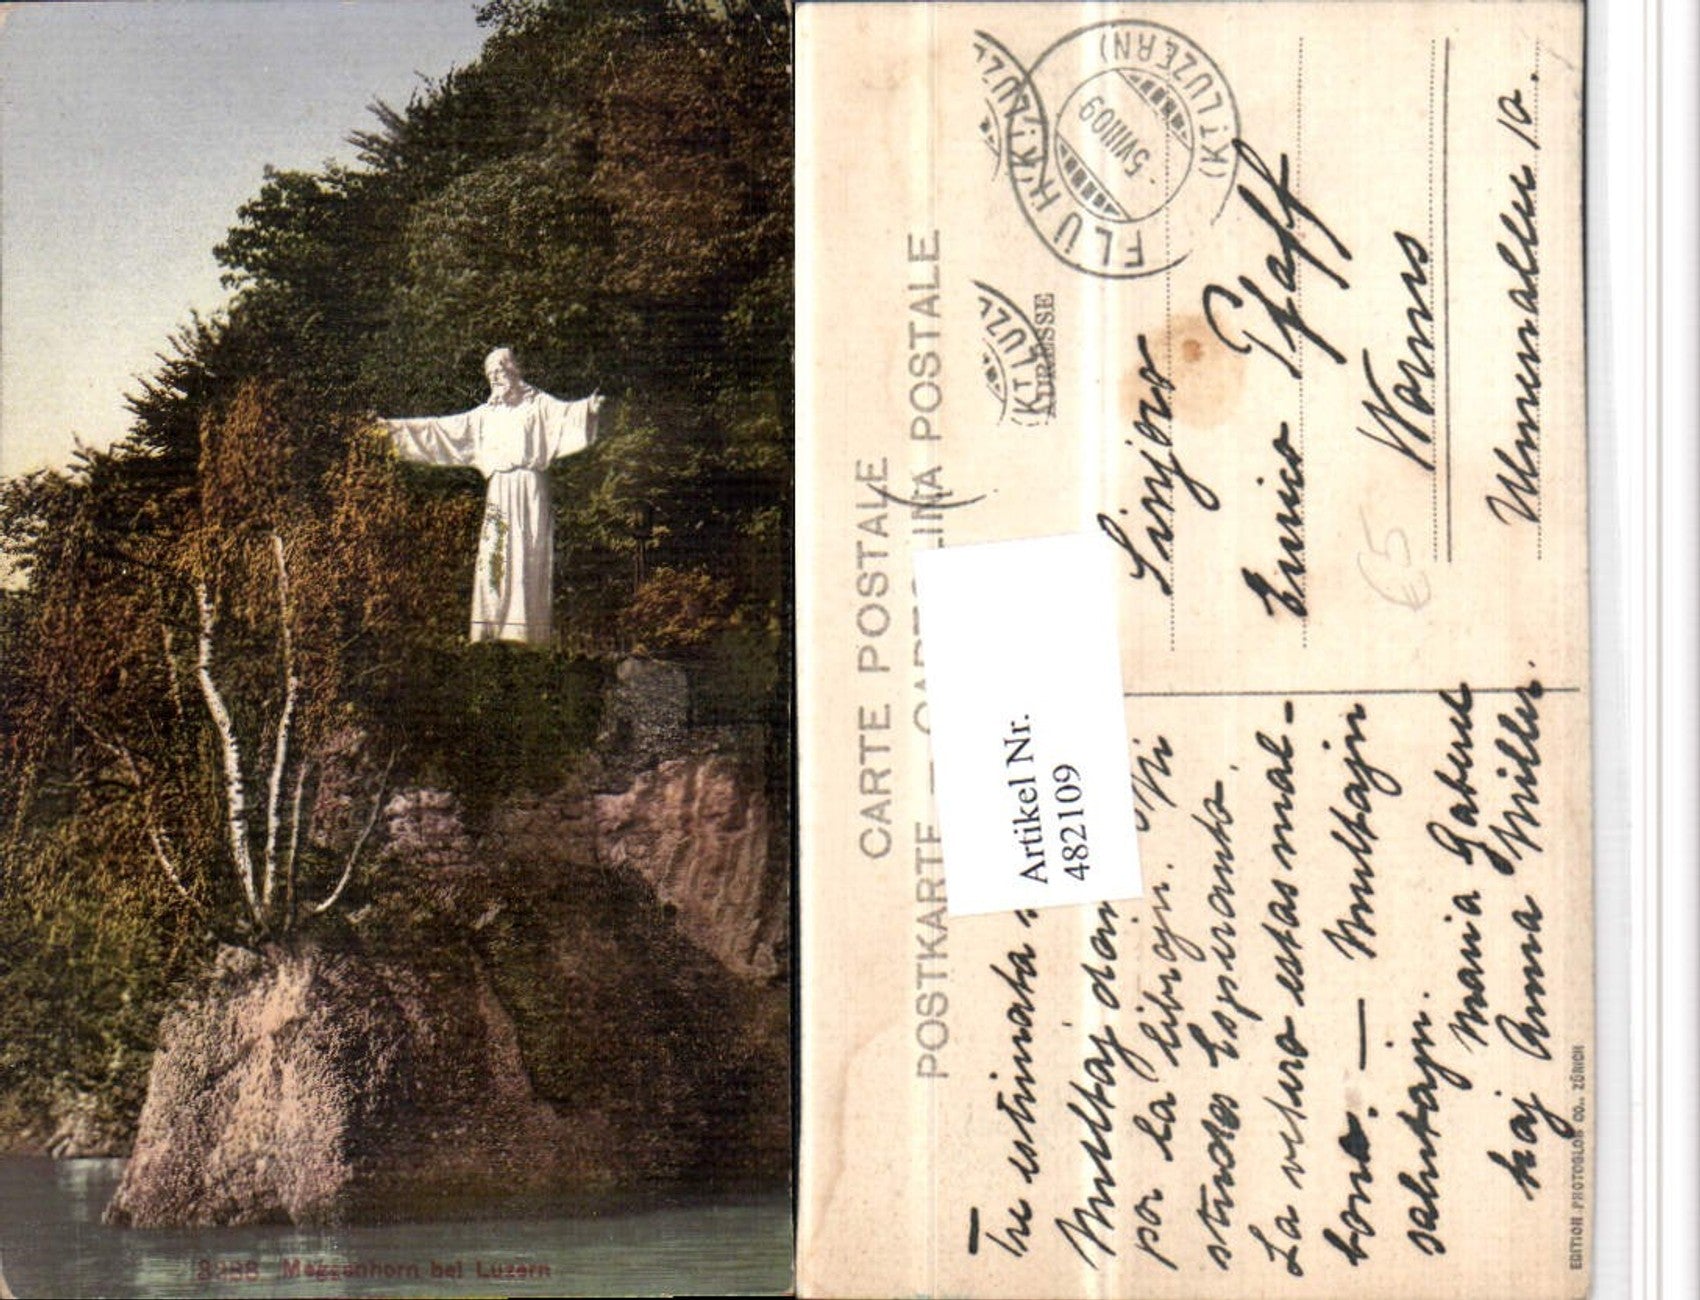 3288 Meggenhorn bei Luzern
CARTE POSTALE
POSTKARTE — CARTOLINA POSTALE
FLÜHLI (KT. LUZERN)
5 VIII 09
(KT. LUZ
ADRESSE
Artikel Nr.
482109
Tre estimata
Multaj dan
por la librojn. Mi
studas Esperanto.
La vetero estas mal-
bona. — Multajn
salutajn.
Maria Gaberel
kaj Anna Müller.
Sinjoro
Enrico Pfaff
Worms
€5
EDITION PHOTOGLOB CO., ZÜRICH